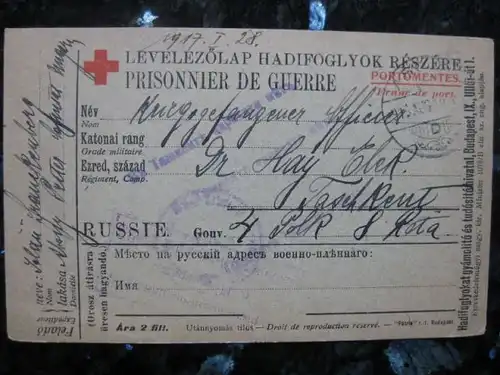 1917. I. 28.
LEVELEZŐLAP HADIFOGLYOK RÉSZÉRE
PRISONNIER DE GUERRE
PORTÓMENTES.
Franc de port.
Név
Nom
Kriegsgefangener Officier
Katonai rang
Grade militaire
Dr Hay Elek
Ezred, század
Régiment, Comp.
Taschkent
RUSSIE. Gouv. 4 Polk 8 Rota
Мѣсто на русскій адресъ военно-плѣннаго:
Имя
(Orosz átirásra üresen hagyandó.)
Ára 2 fill. Utánnyomás tilos — Droit de reproduction reservé. —
Feladó
Expéditeur
neve:
Nom
lakása:
Domicile
Hadifoglyokat gyámolitó és tudósitó hivatal, Budapest, IX., Üllői-út 1.